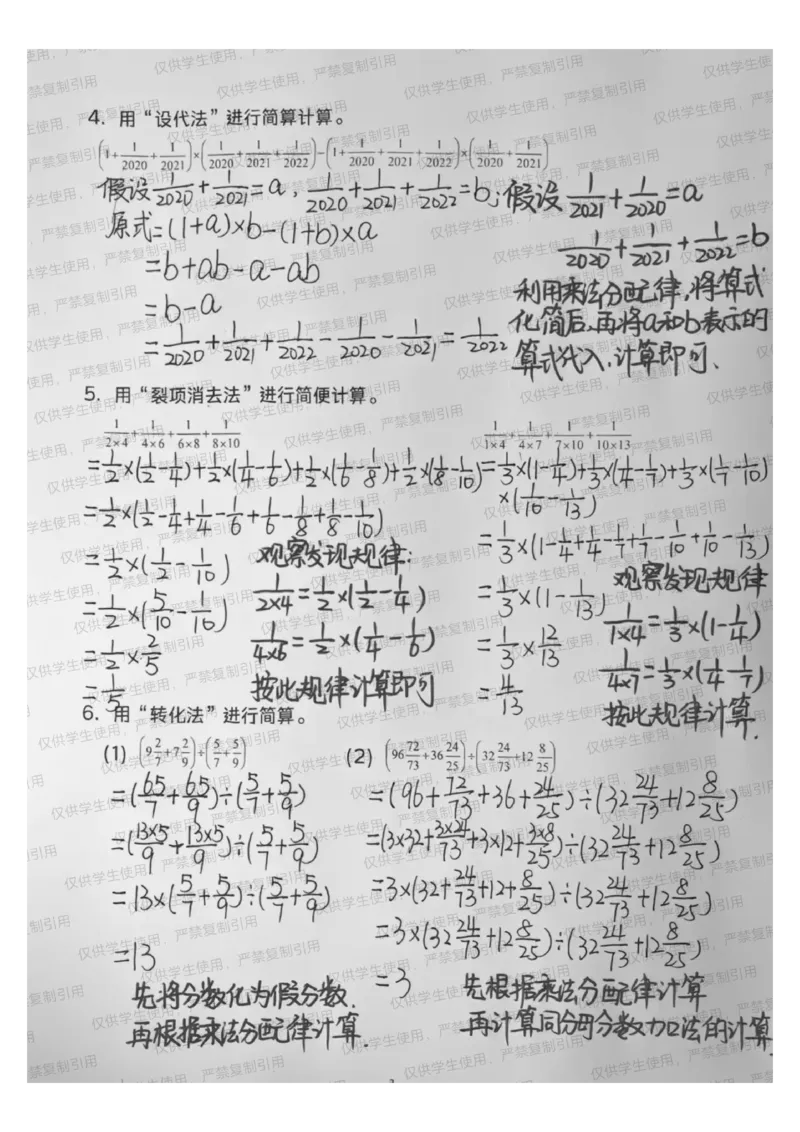 4. 用“设代法”进行简算计算。
(1+1/2020+1/2021)×(1/2020+1/2021+1/2022)-(1+1/2020+1/2021+1/2022)×(1/2020+1/2021)
假设1/2020+1/2021=a，1/2020+1/2021+1/2022=b；
原式=(1+a)×b-(1+b)×a
=b+ab-a-ab
=b-a
=1/2020+1/2021+1/2022-1/2020-1/2021=1/2022
假设1/2021+1/2020=a
1/2020+1/2021+1/2022=b
利用乘法分配律，将算式
化简后，再将a和b表示的
算式代入，计算即可、
5. 用“裂项消去法”进行简便计算。
1/2×4+1/4×6+1/6×8+1/8×10
=1/2×(1/2-1/4)+1/2×(1/4-1/6)+1/2×(1/6-1/8)+1/2×(1/8-1/10)
=1/2×(1/2-1/4+1/4-1/6+1/6-1/8+1/8-1/10)
=1/2×(1/2-1/10)
=1/2×(5/10-1/10)
=1/2×2/5
=1/5
观察发现规律：
1/2×4=1/2×(1/2-1/4)
1/4×6=1/2×(1/4-1/6)
按此规律计算即可
1/1×4+1/4×7+1/7×10+1/10×13
=1/3×(1-1/4)+1/3×(1/4-1/7)+1/3×(1/7-1/10)
×(1/10-1/13)
=1/3×(1-1/4+1/4-1/7+1/7-1/10+1/10-1/13)
=1/3×(1-1/13)
=1/3×12/13
=4/13
观察发现规律
1/1×4=1/3×(1-1/4)
1/4×7=1/3×(1/4-1/7)
按此规律计算.
6. 用“转化法”进行简算。
(1) (9 2/7+7 2/9)÷(5/7+5/9)
=(65/7+65/9)÷(5/7+5/9)
=(13×5/9+13×5/9)÷(5/7+5/9)
=13×(5/7+5/9)÷(5/7+5/9)
=13
先将分数化为假分数.
再根据乘法分配律计算.
(2) (96 72/73+36 24/25)÷(32 24/73+12 8/25)
=(96+72/73+36+24/25)÷(32 24/73+12 8/25)
=(3×32+3×24/73+3×12+3×8/25)÷(32 24/73+12 8/25)
=3×(32+24/73+12+8/25)÷(32 24/73+12 8/25)
=3×(32 24/73+12 8/25)÷(32 24/73+12 8/25)
=3
先根据乘法分配律计算
再计算同分母分数加法的计算.
仅供学生使用，严禁复制引用